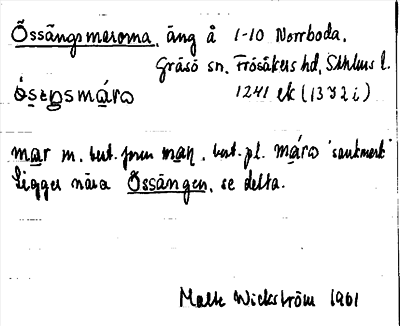 Össängsmarorna, äng å 1-10 Norrboda.
Gräsö sn, Frösåkers hd, Sthlms l.
ósęŋsmárω 1241 ek (1332 i)
mar m, best. form man, best. pl. márω 'sankmark'
Ligger nära Össängen, se detta.
Malte Wickström 1961